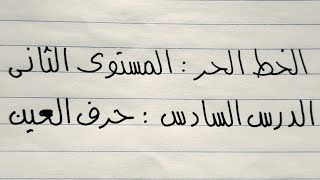 الخط الحر : المستوى الثانى
الدرس السادس : حرف العين